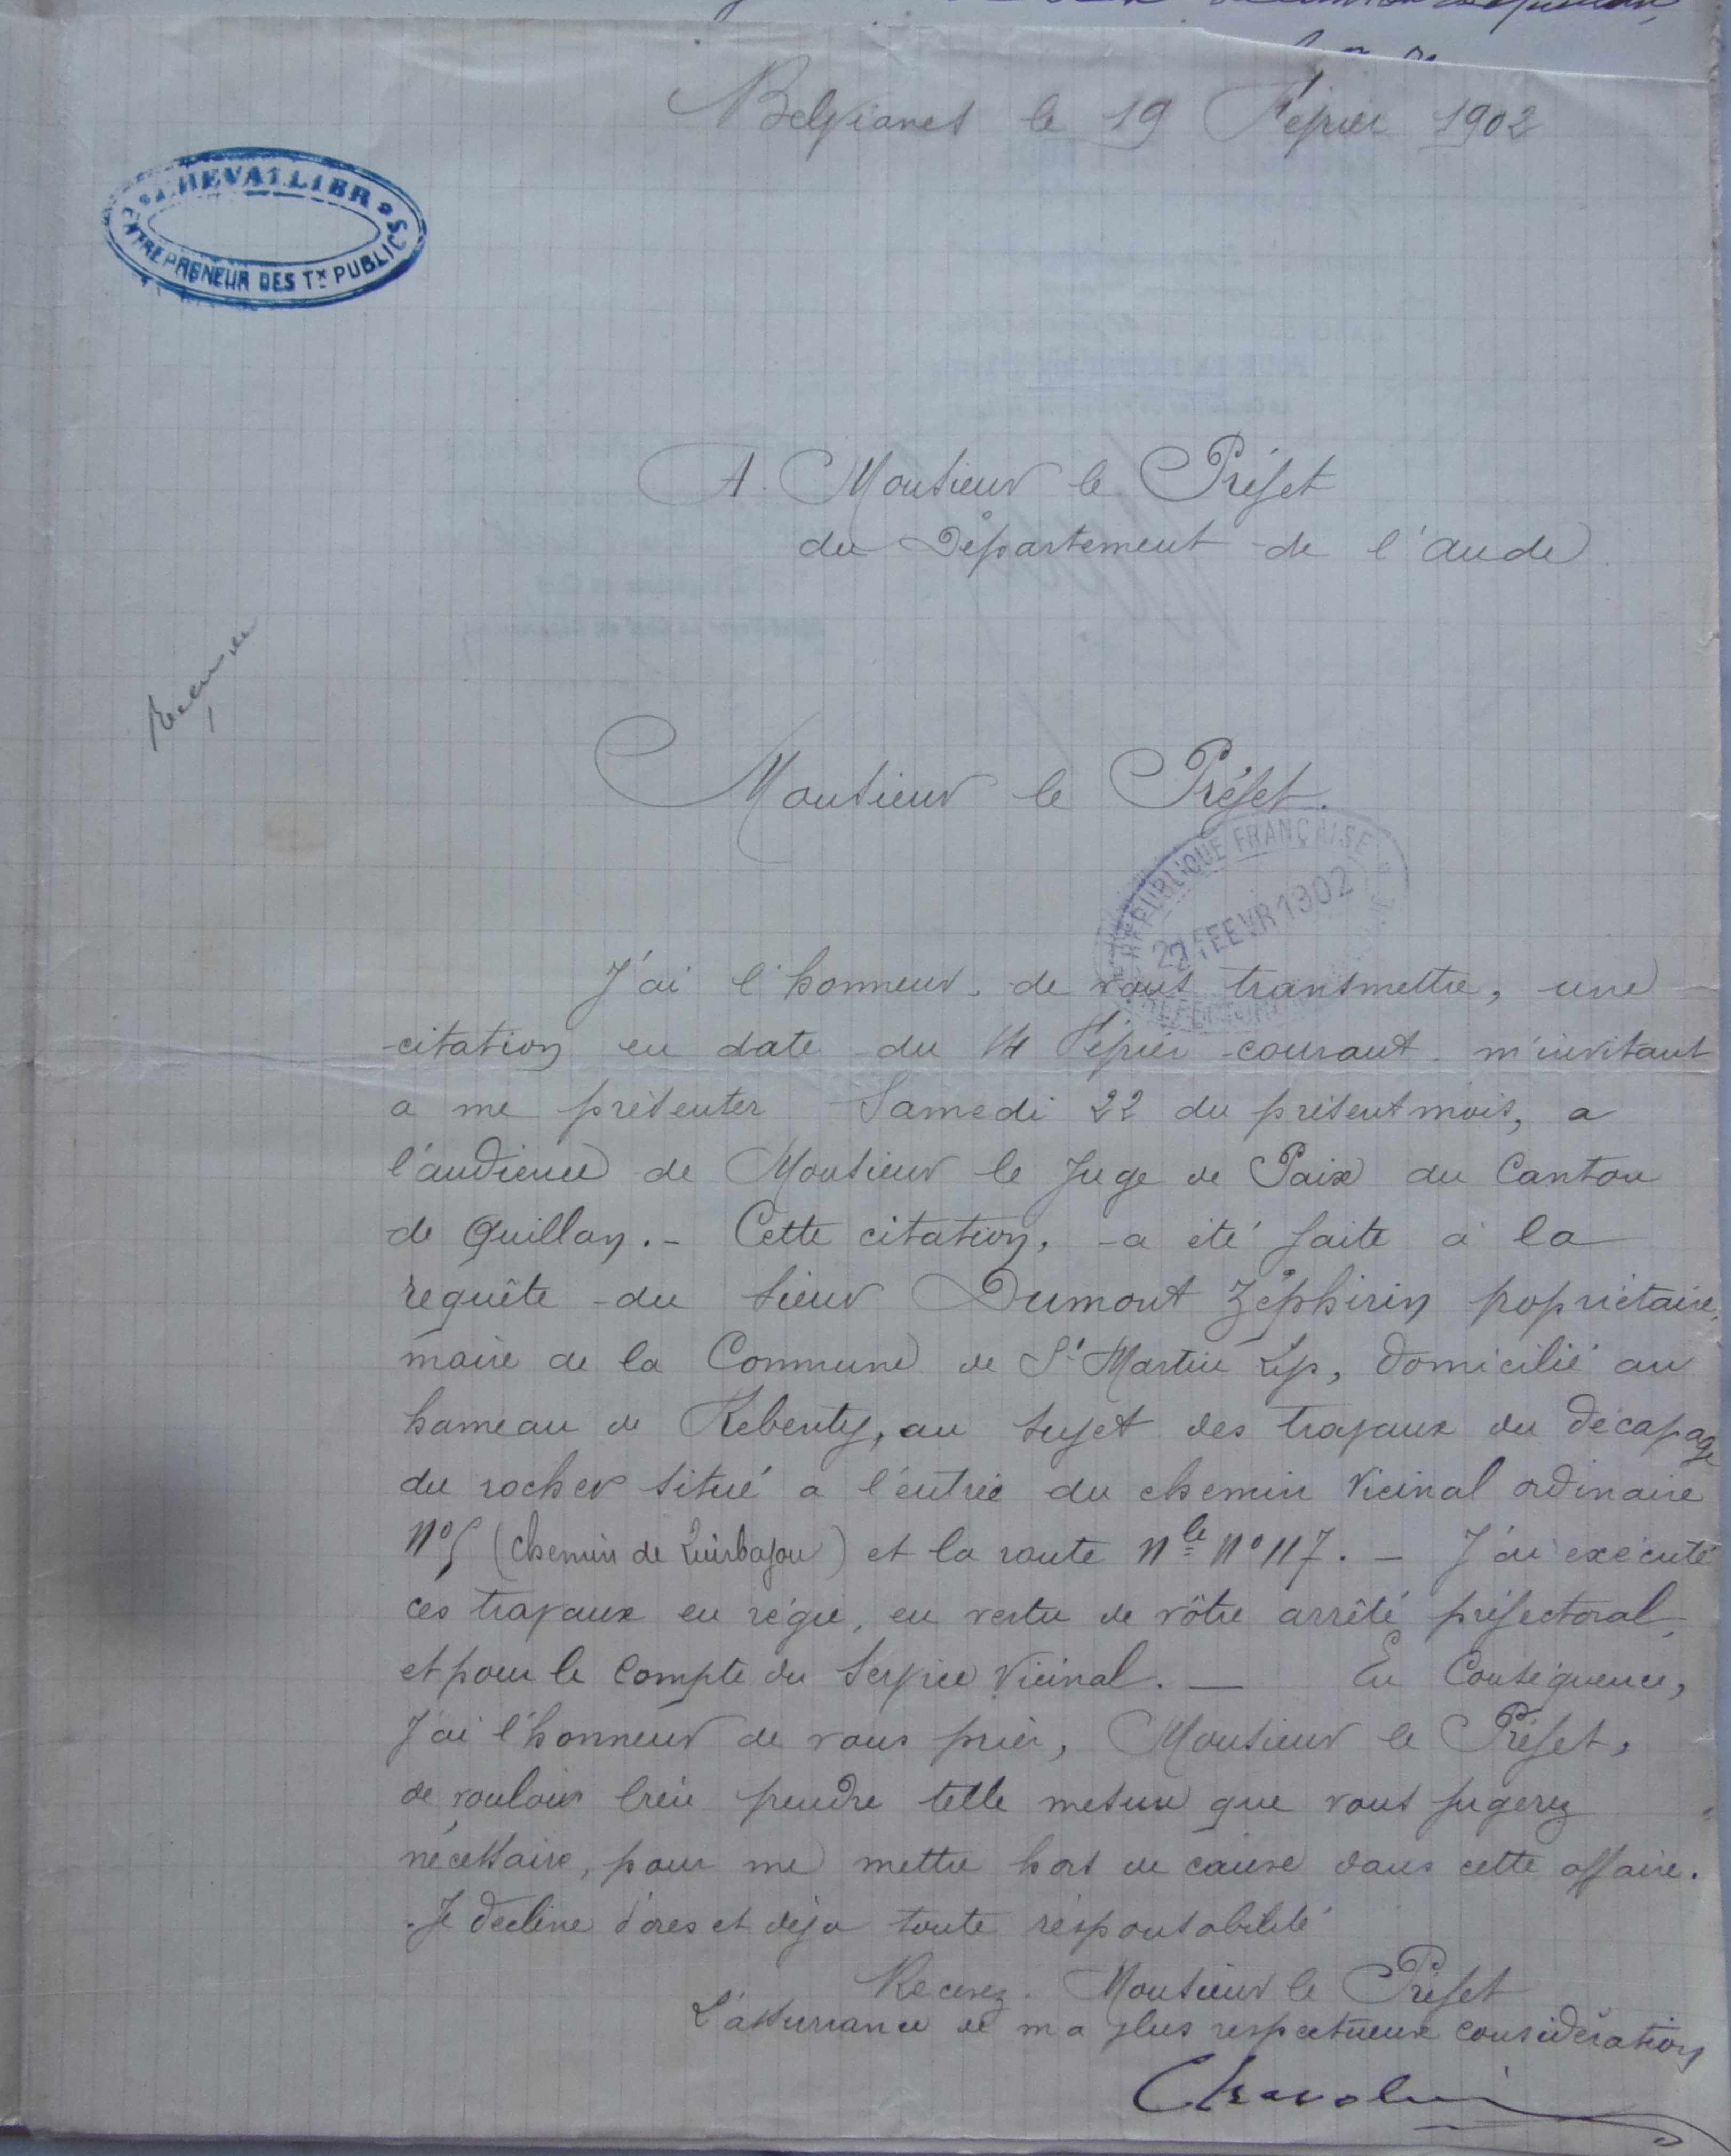 Belvianes le 19 Février 1902
CHEVALLIER
ENTREPRENEUR DES Tx PUBLICS
A. Monsieur le Préfet
du Département de l'aude
Monsieur le Préfet.
RÉPUBLIQUE FRANÇAISE
22 FEVR 1902
J'ai l'honneur de vous transmettre, une
citation en date du 14 Février courant m'invitant
a me présenter Samedi 22 du présent mois, a
l'audience de Monsieur le Juge de Paix du Canton
de Quillan. - Cette citation, a été faite à la
requête du sieur Dumont Zéphirin propriétaire,
maire de la Commune de St Martin Lys, domicilié au
hameau de Rebenty, au sujet des travaux du décapage
du rocher situé a l'entrée du chemin Vicinal ordinaire
N° 5 (Chemin de Quirbajou) et la route Nle N° 117. - J'ai exécuté
ces travaux en régie, en vertu de vôtre arrêté préfectoral,
et pour le Compte du Service Vicinal. — En Conséquence,
J'ai l'honneur de vous prier, Monsieur le Préfet,
de vouloir bien prendre telle mesure que vous jugerez
nécessaire, pour me mettre hors de cause dans cette affaire.
Je decline d'ores et déja toute résponsabilité
Recevez. Monsieur le Préfet
L'assurrance de ma plus respectueuse considération